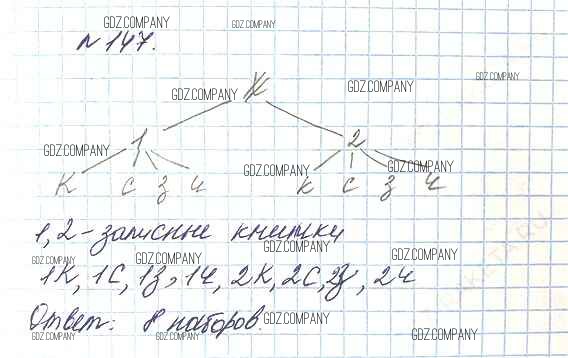 GDZ.COMPANY GDZ.COMPANY
№ 147.
GDZ.COMPANY
GDZ.COMPANY К GDZ.COMPANY
GDZ.COMPANY 1 2
GDZ.COMPANY GDZ.COMPANY
К С З Ч К С З Ч
1,2 - записные книжки
GDZ.COMPANY
GDZ.COMPANY GDZ.COMPANY GDZ.COMPANY
1К, 1С, 1З, 1Ч, 2К, 2С, 2З, 2Ч
Ответ: 8 наборов.
GDZ.COMPANY
GDZ.COMPANY GDZ.COMPANY